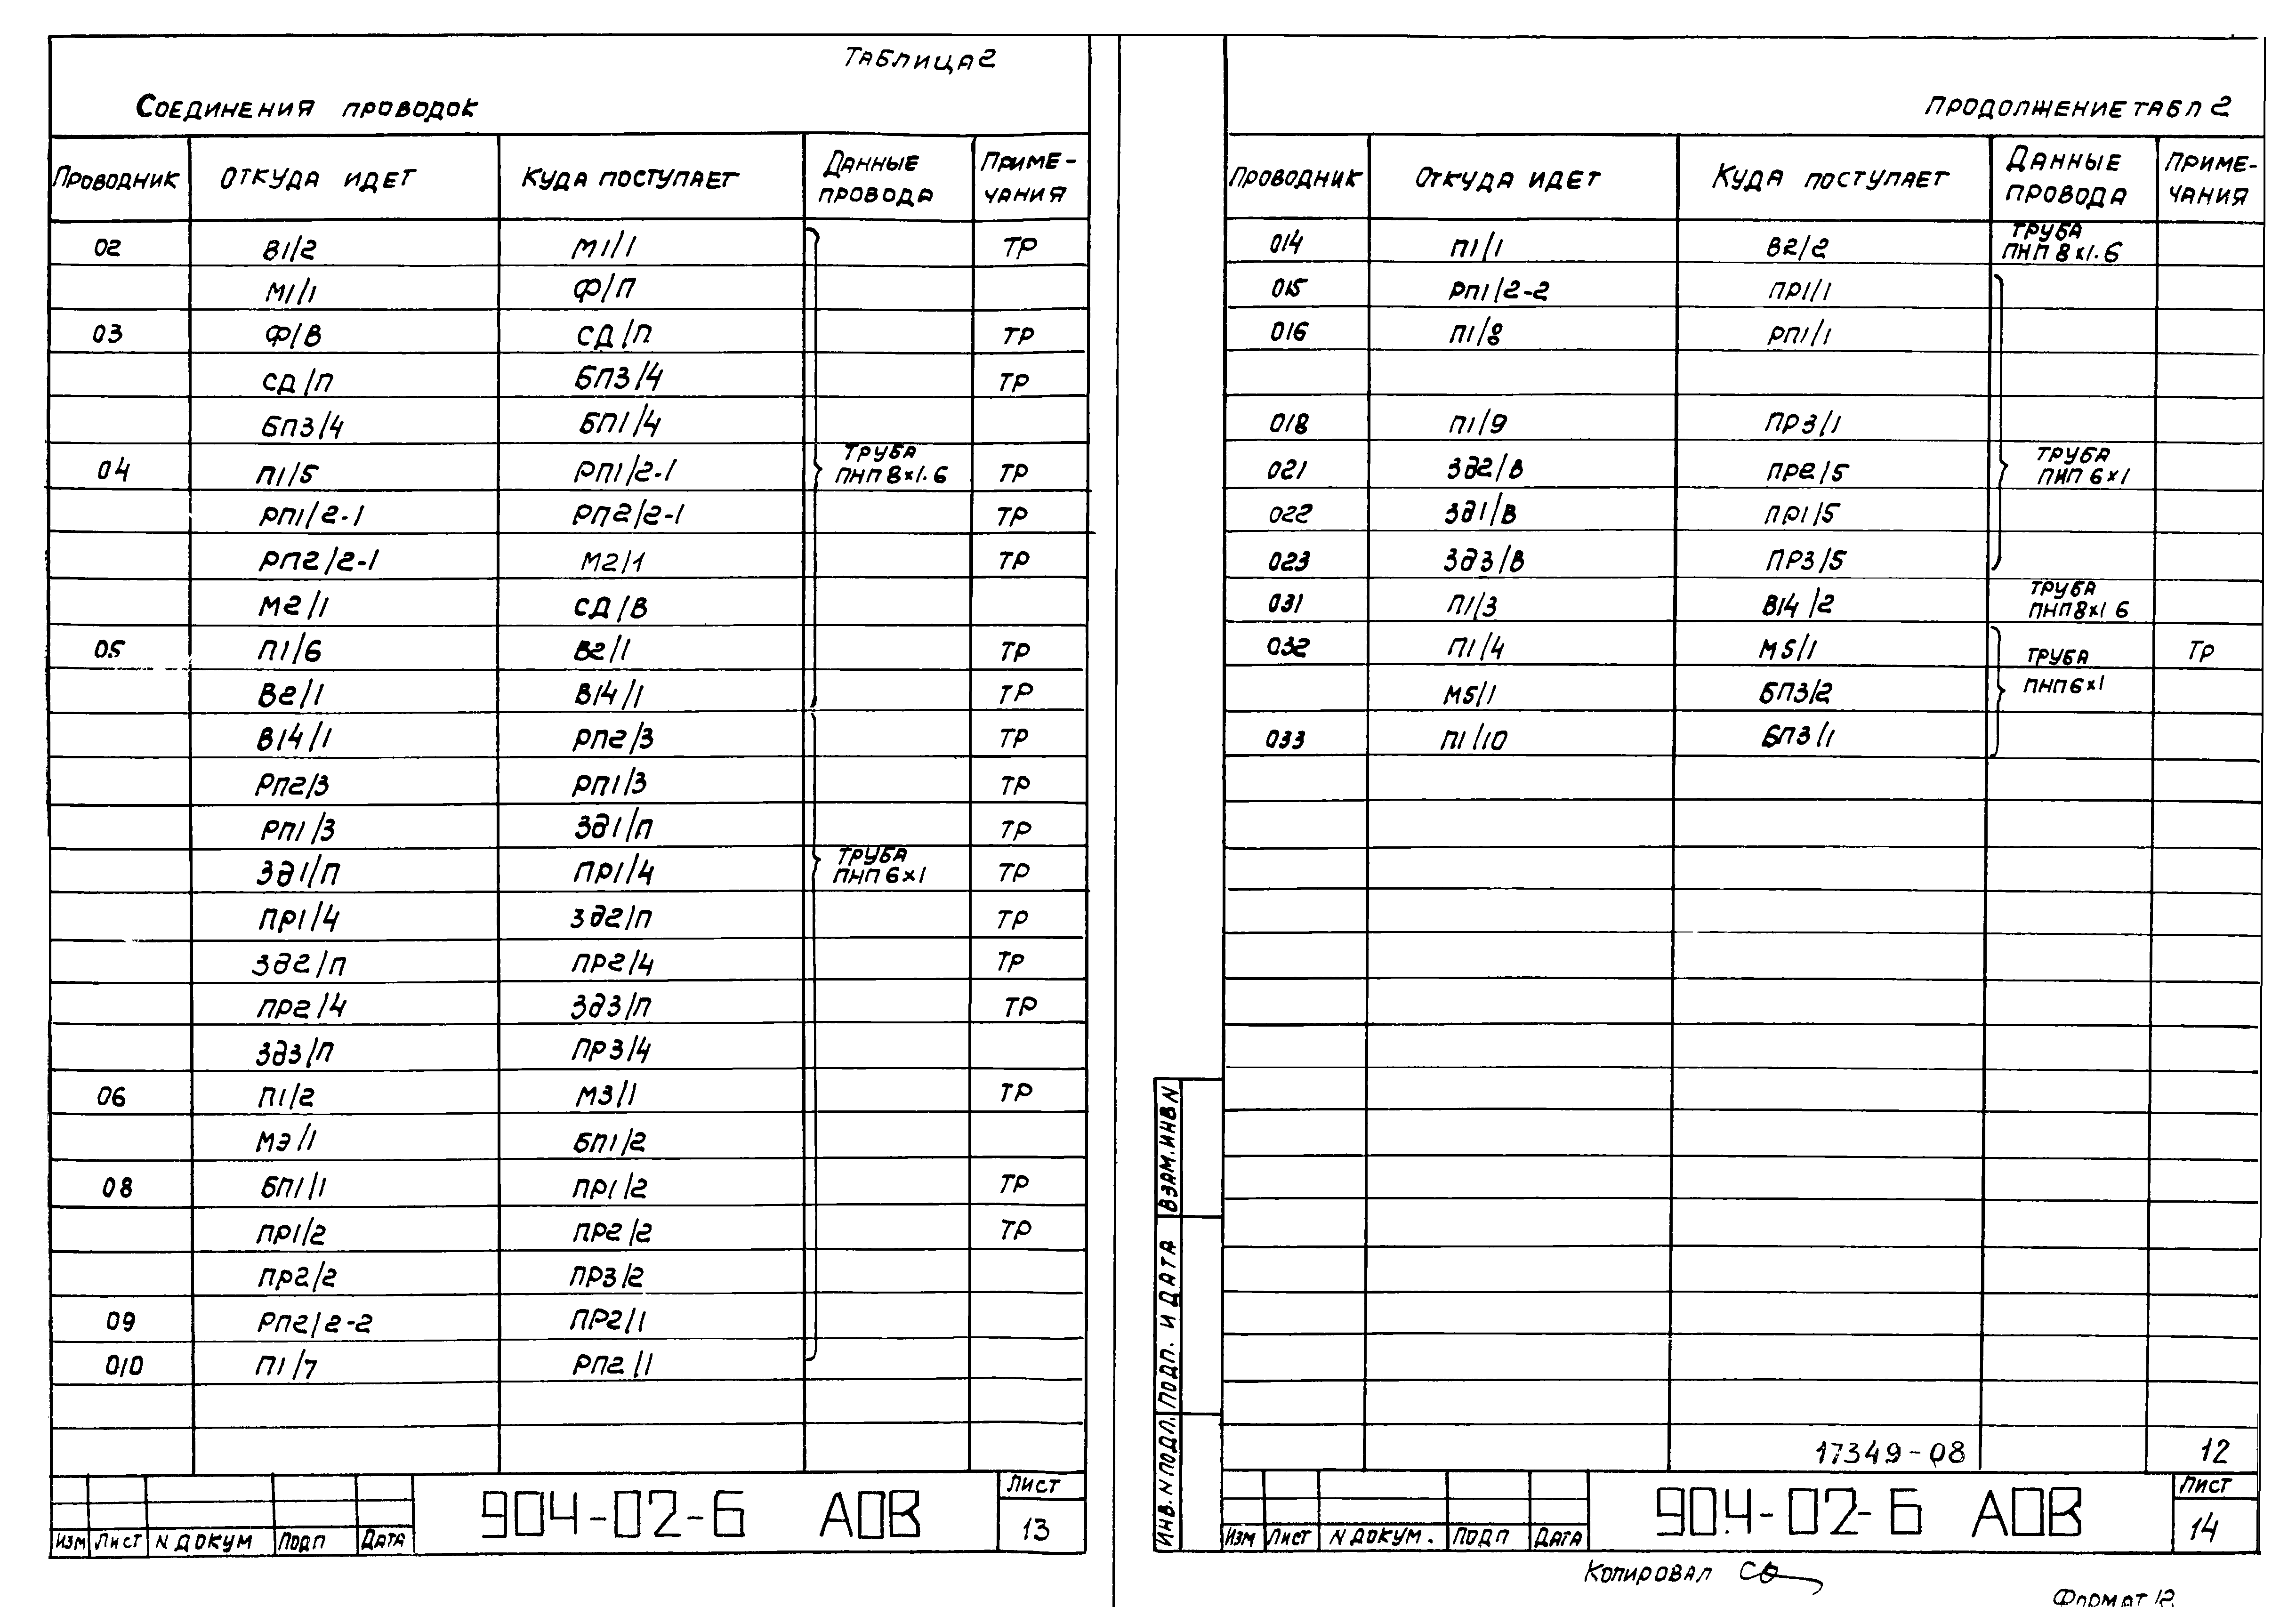 Таблица 2
Соединения проводок
Проводник Откуда идет Куда поступает Данные провода Примечания
02 В1/2 М1/1 ТР
М1/1 Ф/П
03 Ф/В СД/П ТР
СД/П БП3/4 ТР
БП3/4 БП1/4
04 П1/5 РП1/2-1 Труба ПНП 8×1.6 ТР
РП1/2-1 РП2/2-1 ТР
РП2/2-1 М2/1 ТР
М2/1 СД/В
05 П1/6 В2/1 ТР
В2/1 В14/1 ТР
В14/1 РП2/3 ТР
РП2/3 РП1/3 ТР
РП1/3 Зд1/П ТР
Зд1/П ПР1/4 Труба ПНП 6×1 ТР
ПР1/4 Зд2/П ТР
Зд2/П ПР2/4 ТР
ПР2/4 Зд3/П ТР
Зд3/П ПР3/4
06 П1/2 М3/1 ТР
М3/1 БП1/2
08 БП1/1 ПР1/2 ТР
ПР1/2 ПР2/2 ТР
ПР2/2 ПР3/2
09 РП2/2-2 ПР2/1
010 П1/7 РП2/1
Изм Лист N докум Подп Дата
904-02-6 АОВ
Лист
13
Продолжение табл 2
Проводник Откуда идет Куда поступает Данные провода Примечания
014 П1/1 В2/2 Труба ПНП 8×1.6
015 РП1/2-2 ПР1/1
016 П1/8 РП1/1
018 П1/9 ПР3/1
021 Зд2/В ПР2/5 Труба ПНП 6×1
022 Зд1/В ПР1/5
023 Зд3/В ПР3/5
031 П1/3 В14/2 Труба ПНП 8×1 6
032 П1/4 М5/1 Труба ТР
М5/1 БП3/2 ПНП 6×1
033 П1/10 БП3/1
17349-08 12
Взам. инв N
Подп. и дата
Инв. N подл.
Изм Лист N докум. Подп Дата
904-02-6 АОВ
Лист
14
Копировал
Формат 12